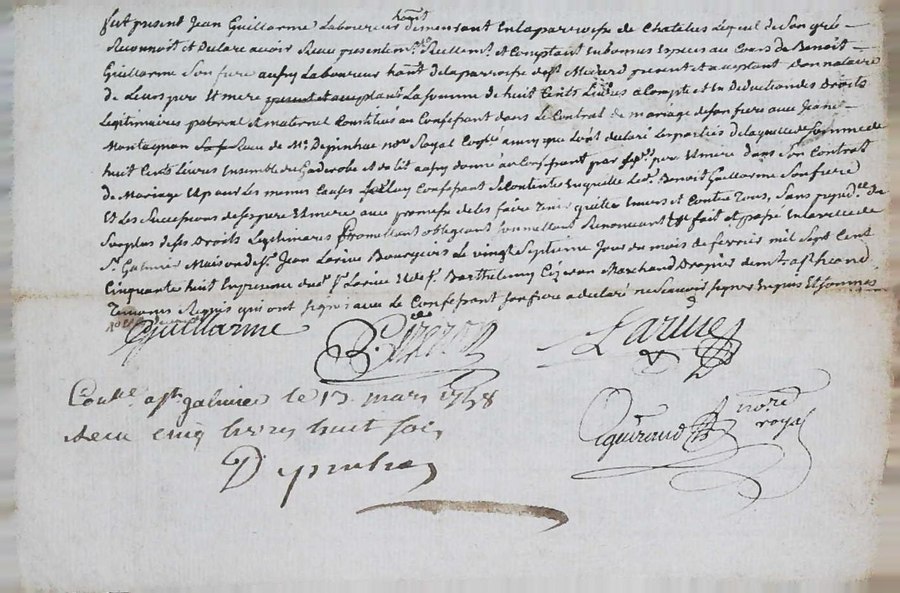 fut present Jean Guillarme Laboureur habit demeurant en la parroisse de Chatelus Lequel de Son gré
Reconnoit et Declare avoir Receu presentemt. Reellemt. et Comptant en bonnes Especes au Cours de Benoit
Guillarme Son frere aussy Laboureur habt. de la parroisse de St. Medard present et acceptant donnataire
de Leurs pere et mere La somme de huit Cents Livres a Compte et en Deduction des Droits
Legitimaires paternel et maternel Constitués au Confessant dans le Contrat de mariage de son frere avec Jeanne
Montagnon Receu de Me. Depinhac nore. Royal ainsy que Lont declaré Les parties De laquelle Somme de
huit Cents Livres Ensemble du Garderobe et du lit aussy donné au Confessant par ses pere et mere dans Son Contrat
de Mariage et pour Les memes Causes Led. Confessant Se Contente en quitte Led. Benoit Guillarme Son frere
et Les Successions de ses pere et mere avec promesse de les faire tenir quitte Envers et Contre Tous, Sans prejudice du
Surplus de ses Droits Legitimaires promettant obligeant soumettant Renonceant fait et passé en la ville de
St. Galmier Maison de Sr. Jean Larive Bourgeois Le vingt Septieme Jour du mois de fevrier mil Sept Cent
Cinquante huit En presence dud. Sr. Larive et de Sr. Barthelemy Marchand Drapier demt. a St. Heand
temoins Requis qui ont signé avec Le Confessant son frere a declaré ne Scavoir signer Enquis et Sommés
Guillarme
B.
Larive
Conlle. a St. galmier le 13 mars 1758
Receu cinq livres huit sols
Depinhac
guiraud nore.
royal